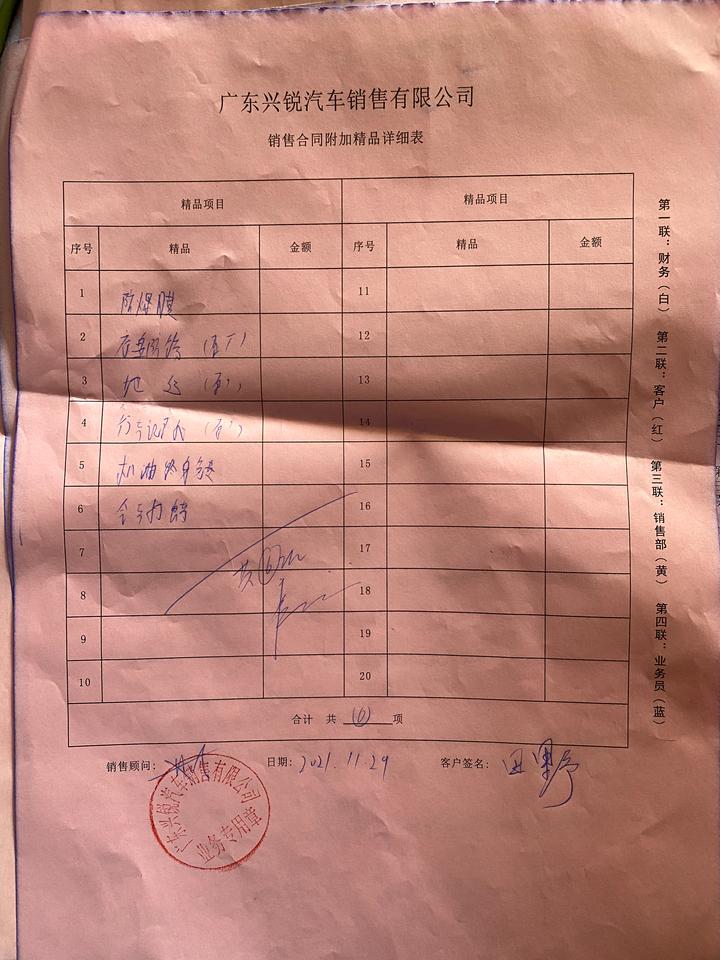 广东兴锐汽车销售有限公司
销售合同附加精品详细表
精品项目 精品项目
序号 精品 金额 序号 精品 金额
1 防爆膜 11
2 12
3 13
4 行车记录仪 14
5 机油终身 15
6 全车 16
7 17
8 共 18
9 19
10 20
合计 共 6 项
销售顾问: 日期: 2021.11.29 客户签名:
广东兴锐汽车销售有限公司
业务专用章
第一联:财务(白) 第二联:客户(红) 第三联:销售部(黄) 第四联:业务员(蓝)